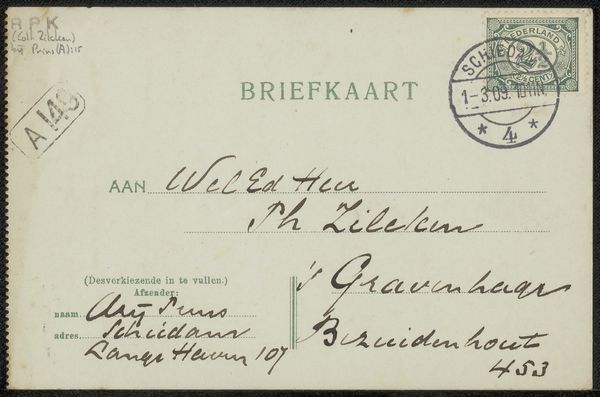 R P K
(Coll. Zilcken)
bij Prins (A): 15
A 149
NEDERLAND
2½
2½ CENT
SCHIEDAM
1-3.09. 10 11N.
* 4 *
BRIEFKAART
AAN Wel Ed Heer
Ph Zilcken
's Gravenhage
Bezuidenhout
453
(Desverkiezende in te vullen.)
Afzender:
naam Arij Prins
adres Schiedam
Lange Haven 107